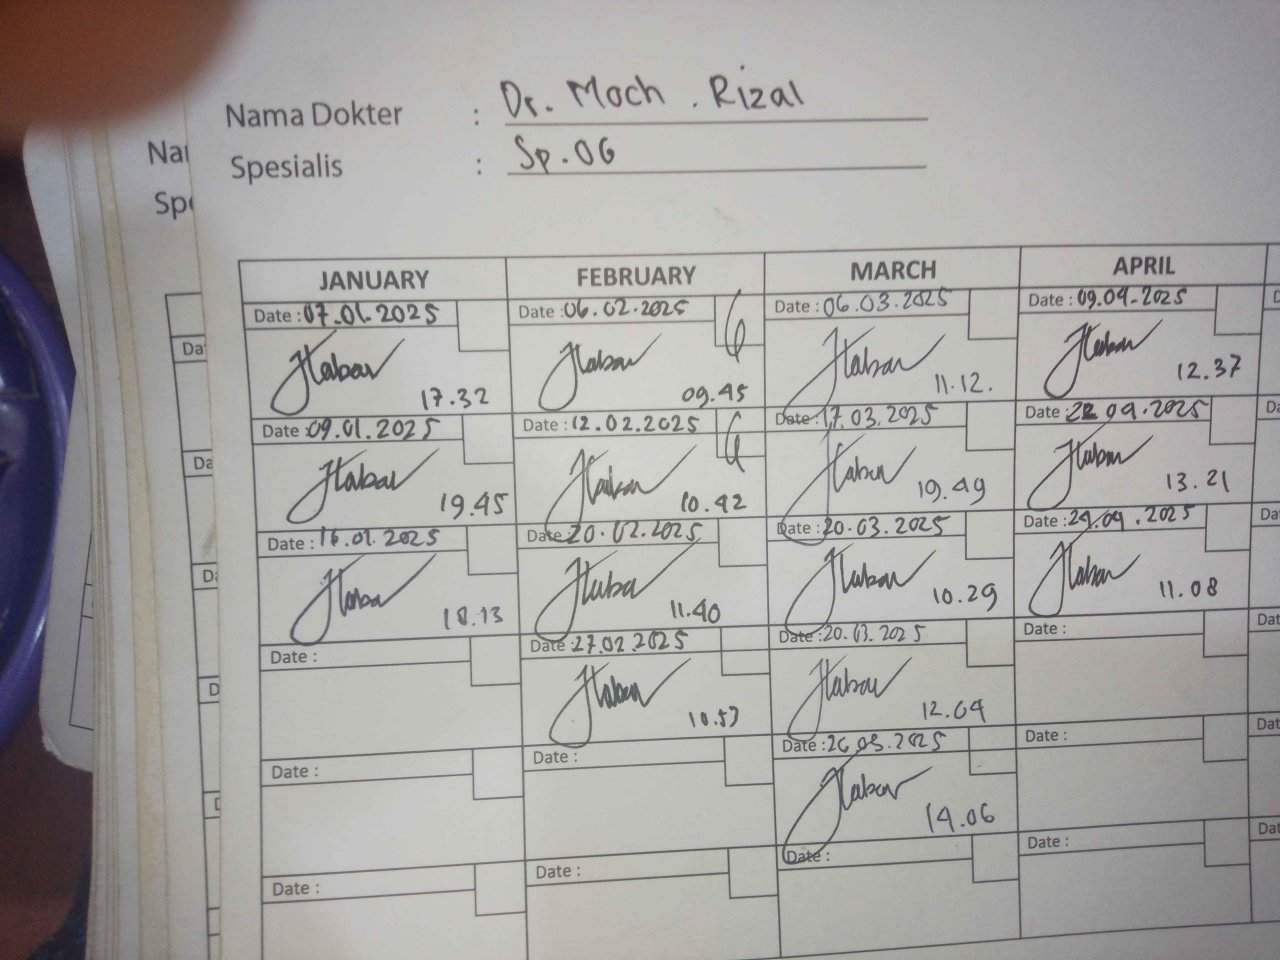 Nama Dokter : Dr. Moch. Rizal
Spesialis : Sp.OG
Nai
Spe
JANUARY FEBRUARY MARCH APRIL
Date : 07.01.2025 Date : 06.02.2025 Date : 06.03.2025 Date : 09.04.2025
17.32 09.45 11.12. 12.37
Date : 09.01.2025 Date : 12.02.2025 Date : 17.03.2025 Date : 22.04.2025
19.45 10.42 19.49 13.21
Date : 16.01.2025 Date : 20.02.2025 Date : 20.03.2025 Date : 29.04.2025
18.13 11.40 10.29 11.08
Date : Date : 27.02.2025 Date : 20.03.2025 Date :
10.53 12.04
Date : Date : Date : 26.03.2025 Date :
14.06
Date : Date : Date : Date :